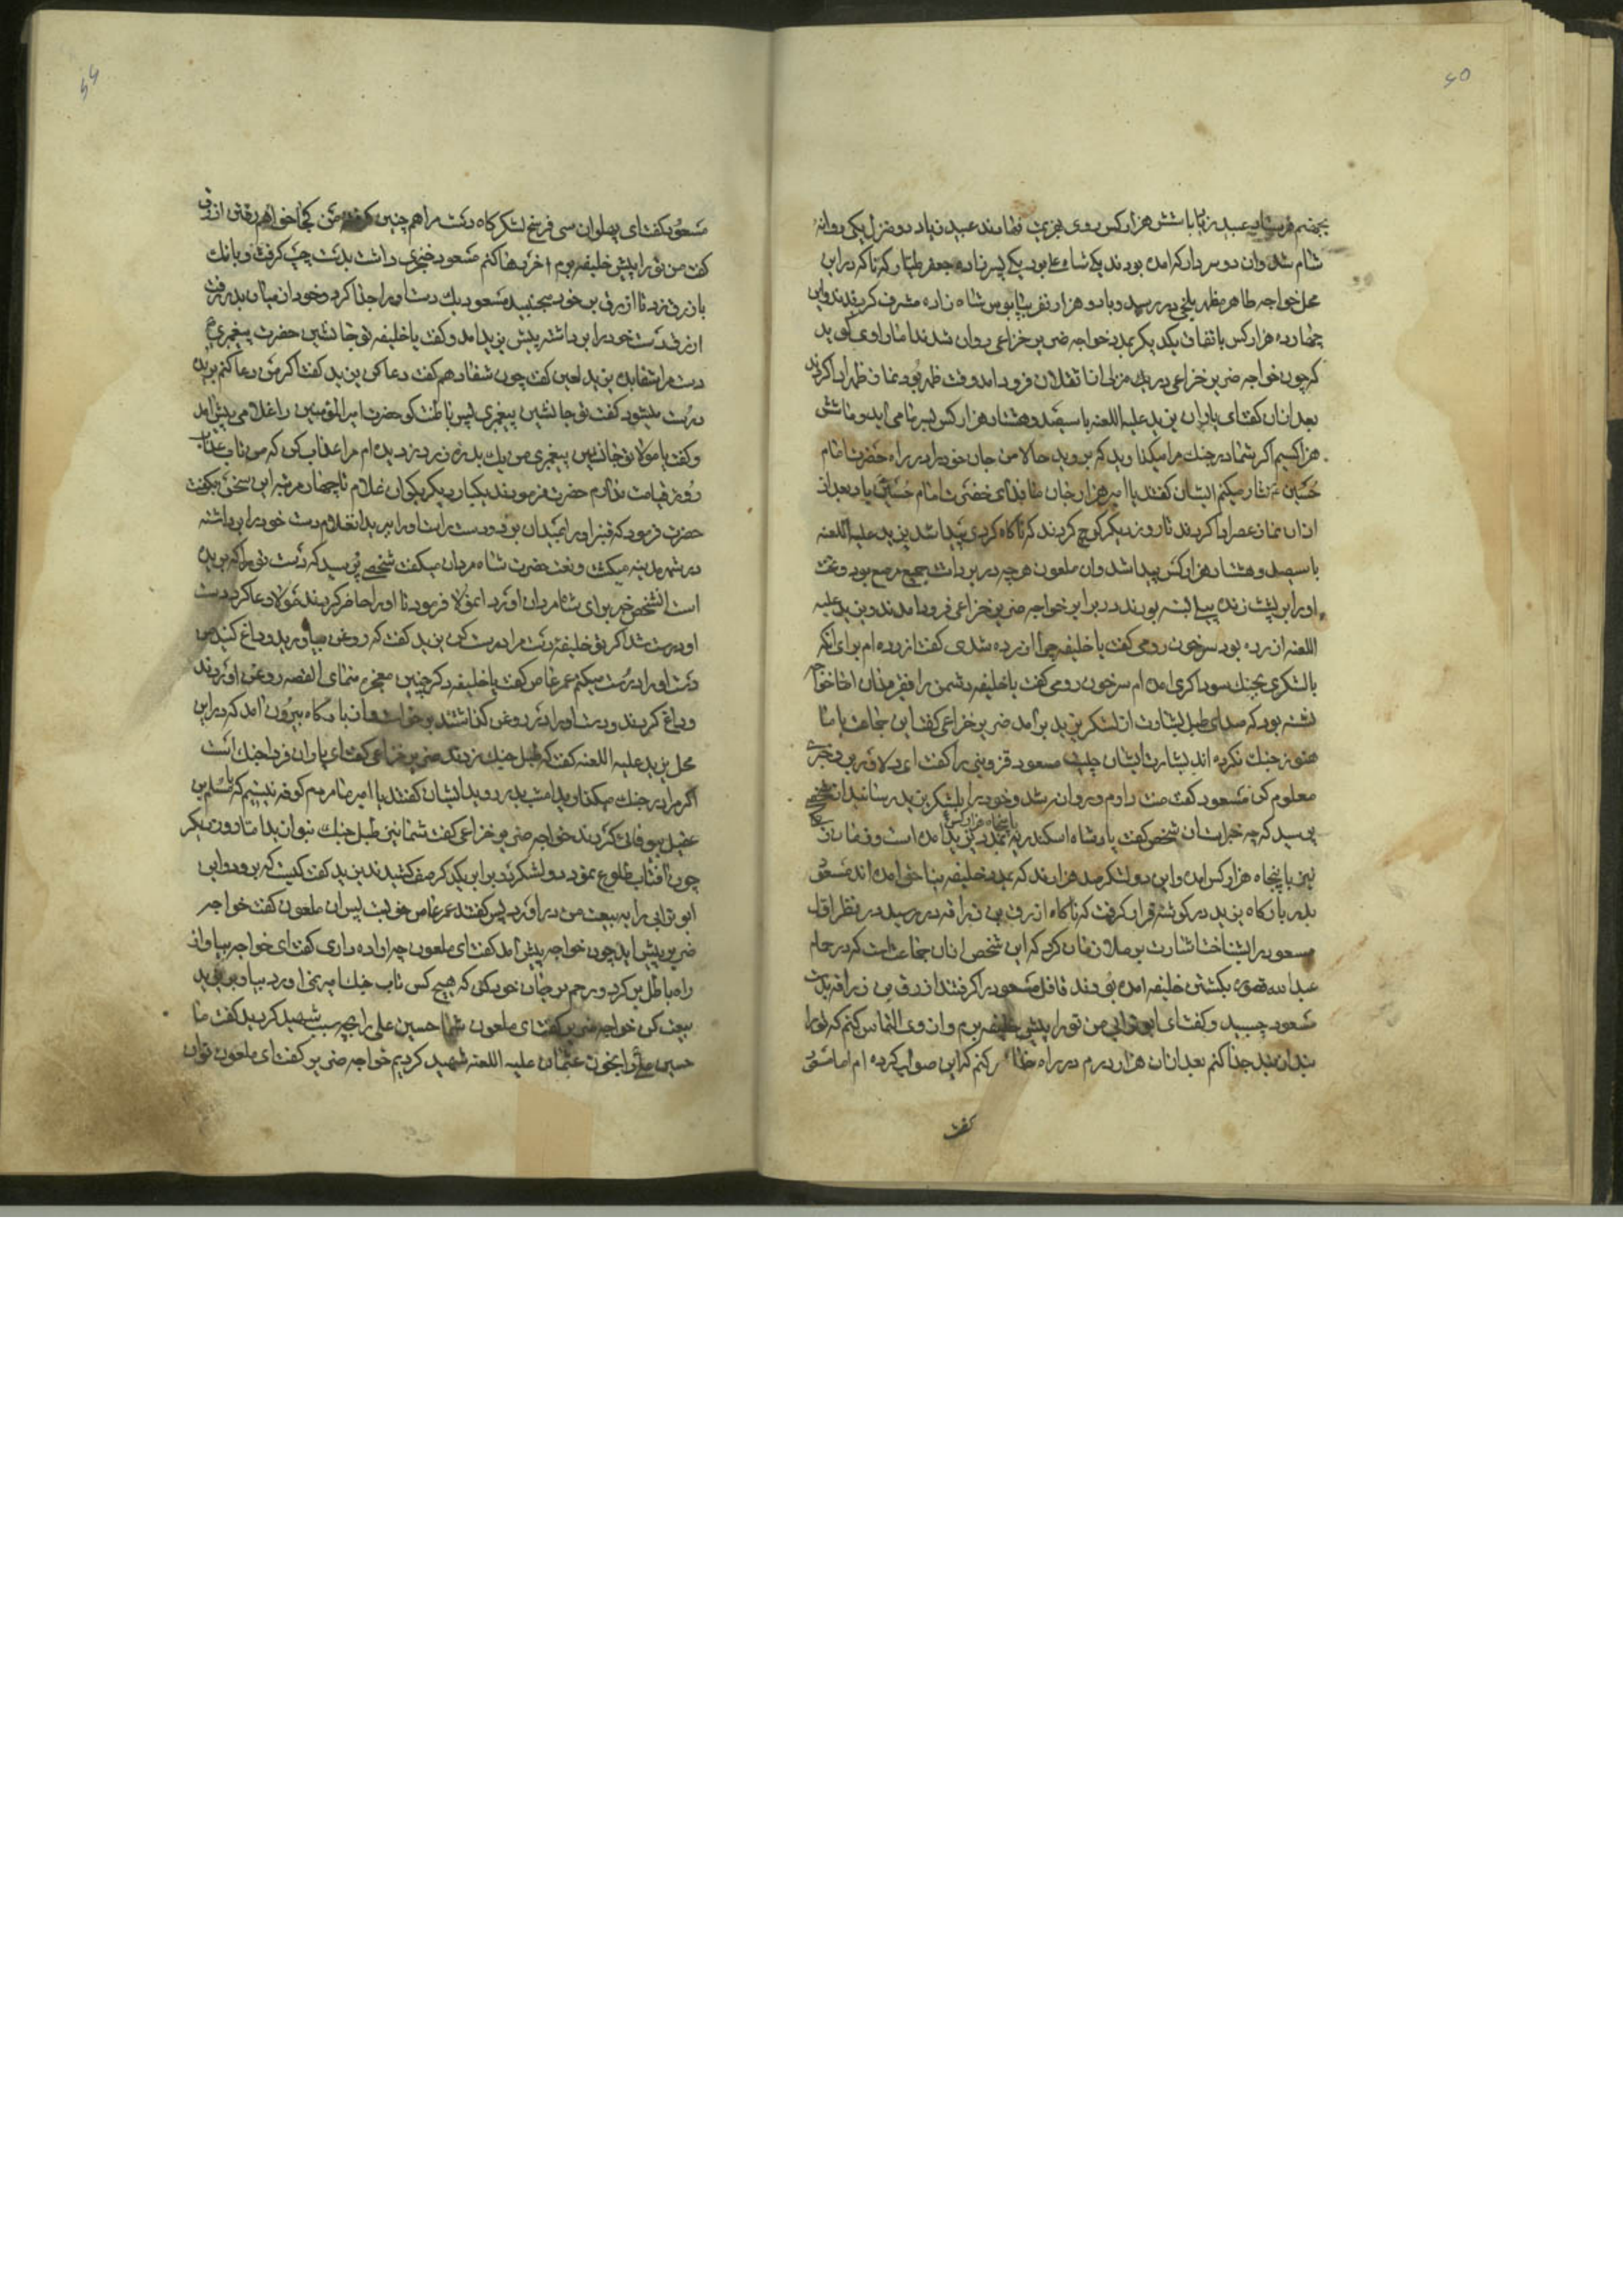 بجهنم فرستاد عبید زیاد با شش هزار کس روی بهزیمت نهادند عبید زیاد دو منزل یکی روانه
شام شد وان دو سردار که امده بودند یکی شاه علی بود یکی پسرزاده جعفر طیار که ناکه در این
محل خواجه طاهر مظهر بلخی در رسید و با دو هزار نفر بپابوس شاه زاده مشرف کردیدند و این
چهارده هزار کس باتفاق یکدیکر بمدد خواجه ضریر خزاعی روان شدند اما راوی کوید
که چون خواجه ضریر خزاعی در یک منزلی فرود امد وقت ظهر بود نماز ظهر ادا کردند
بعد از ان کفت ای یاران یزید علیه اللعنه با سیصد و هشتاد هزار کس بسر ما می اید و ما شش
هزار کسیم اکر شما در جنک مرا میکذارید که بروید حالا من جان خود را در راه حضرت امام
حسین ع نثار میکنم ایشان کفتند یا امیر هزار جان ما فدای حضرت امام حسین باد بعد از
ان نماز عصر ادا کردند تا روز دیکر کوچ کردند که ناکاه کردی پیدا شد یزید علیه اللعنه
با سیصد و هشتاد هزار کس پیدا شد وان ملعون هرچه در بر داشت جمیع مرصع بود و تخت
او را بر پشت زنده پیلی بسته بودند در برابر خواجه ضریر خزاعی فرود امدند و یزید علیه
اللعنه ازرده بود سرخون رومی کفت یا خلیفه چرا ازرده شدی کفت ازرده ام برای انکه
با لشکری بجنک سوداکری امده ام سرخون رومی کفت یا خلیفه دشمن را فقیر مدان اما خواجه
نشسته بود که صدای طبل بشارت از لشکر یزید بر امد ضریر خزاعی کفت این جماعت با ما
هنوز جنک نکرده اند بشارت ایشان چیست مسعود قزوینی را کفت ای دلاور برو و خبری
معلوم کن مسعود کفت منت دارم و روان شد و خود را بلشکر یزید رسانید از شخصی
پرسید که چه خبر است ان شخص کفت پادشاه اسکندریه با پنجاه هزار کس بمدد یزید امده است و نعمان
نیز با پنجاه هزار کس امده و این دو لشکر صد هزارند که بمدد خلیفه بناحق امده اند مسعود
بدر بارکاه یزید در کوشه قرار کرفت که ناکاه ازرق بن زراقه در رسید در نظر اول
مسعود را بشناخت اشارت بر ملازمان کرد که این شخص از ان جماعت است که در حمام
عبدالله بکشتن خلیفه امده بودند غافل مسعود را کرفتند ازرق بن زراقه بدست
مسعود چسبید و کفت ای ابوترابی من تو را پیش خلیفه برم و از وی التماس کنم که تو را
بند از بند جدا کنم بعد از ان هزار درم در راه خدا کنم که این صواب کرده ام اما مسعود
کفت
مسعود کفت ای پهلوان سی فرسخ لشکرکاه دست مرا همچنین کرفته من کجا خواهم رفتن ازرق
کفت من تو را پیش خلیفه برم اخر رها کنم مسعود خنجری داشت بدست چپ کرفت و بانک
باز رق زد تا ازرق بر خود بجنبید مسعود یک دست او را جدا کرد و خود از میان بدر رفت
ازرق دست خود را برداشته پیش یزید امد و کفت یا خلیفه تو جانشین حضرت پیغمبری
دست مرا شفا بده یزید لعین کفت چون شفا دهم کفت دعا کن یزید کفت اکر من دعا کنم بریده
درست میشود کفت تو جانشین پیغمبری پس حضرت امیرالمؤمنین را غلامی پیش امد
و کفت یا مولا تو جانشین پیغمبری من یک بدره زر دزدیده ام مرا عذاب کن که من تاب عذاب
روز قیامت ندارم حضرت فرمودند یکبار دیکر بکو ان غلام تا چهار مرتبه این سخن میکفت
حضرت فرمود که قنبر او را بمیدان برد و دست راست او را برید ان غلام دست خود را برداشته
در شهر مدینه میکشت و نعت حضرت شاه مردان میکفت شخصی پرسید که دست تو را که بریده
است انشخص خبر برای شاه مردان اورد مولا فرمود تا او را حاضر کردند مولا دعا کرد دست
او درست شد اکر تو خلیفه دست مرا درست کن یزید کفت که روغن بیاورید و داغ کنید من
دست او را درست میکنم عمر عاص کفت یا خلیفه دکر چنین معجزه منمای القصه روغن اوردند
و داغ کردند و دست او را در روغن کذاشتند بر خواست و از بارکاه بیرون امد که در این
محل یزید علیه اللعنه کفت که طبل جنک زدند ضریر خزاعی کفت ای یاران فردا جنک است
اکر مرا در جنک میکذارید امشب بدر روید ایشان کفتند یا امیر ما مردم کوفه نیستیم که با مسلم بن
عقیل بیوفائی کردند خواجه ضریر خزاعی کفت شما نیز طبل جنک بنوازید اما تا روز دیکر
چون افتاب طلوع نمود دو لشکر در برابر یکدیکر صف کشیدند یزید کفت کیست که برود و این
ابوترابی را به بیعت من در اورد پس کفتند عمر عاص خوبست پس ان ملعون کفت خواجه
ضریر پیش اید چون خواجه پیش امد کفت ای ملعون چه اراده داری کفت ای خواجه بیا و از
راه باطل بر کرد و رحم بر جان خود کن که هیچ کس تاب جنک امیر نمی اورد بیا و با یزید
بیعت کن خواجه ضریر کفت ای ملعون شما حسین علی را بچه سبب شهید کردید کفت ما
حسین علی را بخون عثمان علیه اللعنه شهید کردیم خواجه ضریر کفت ای ملعون توان